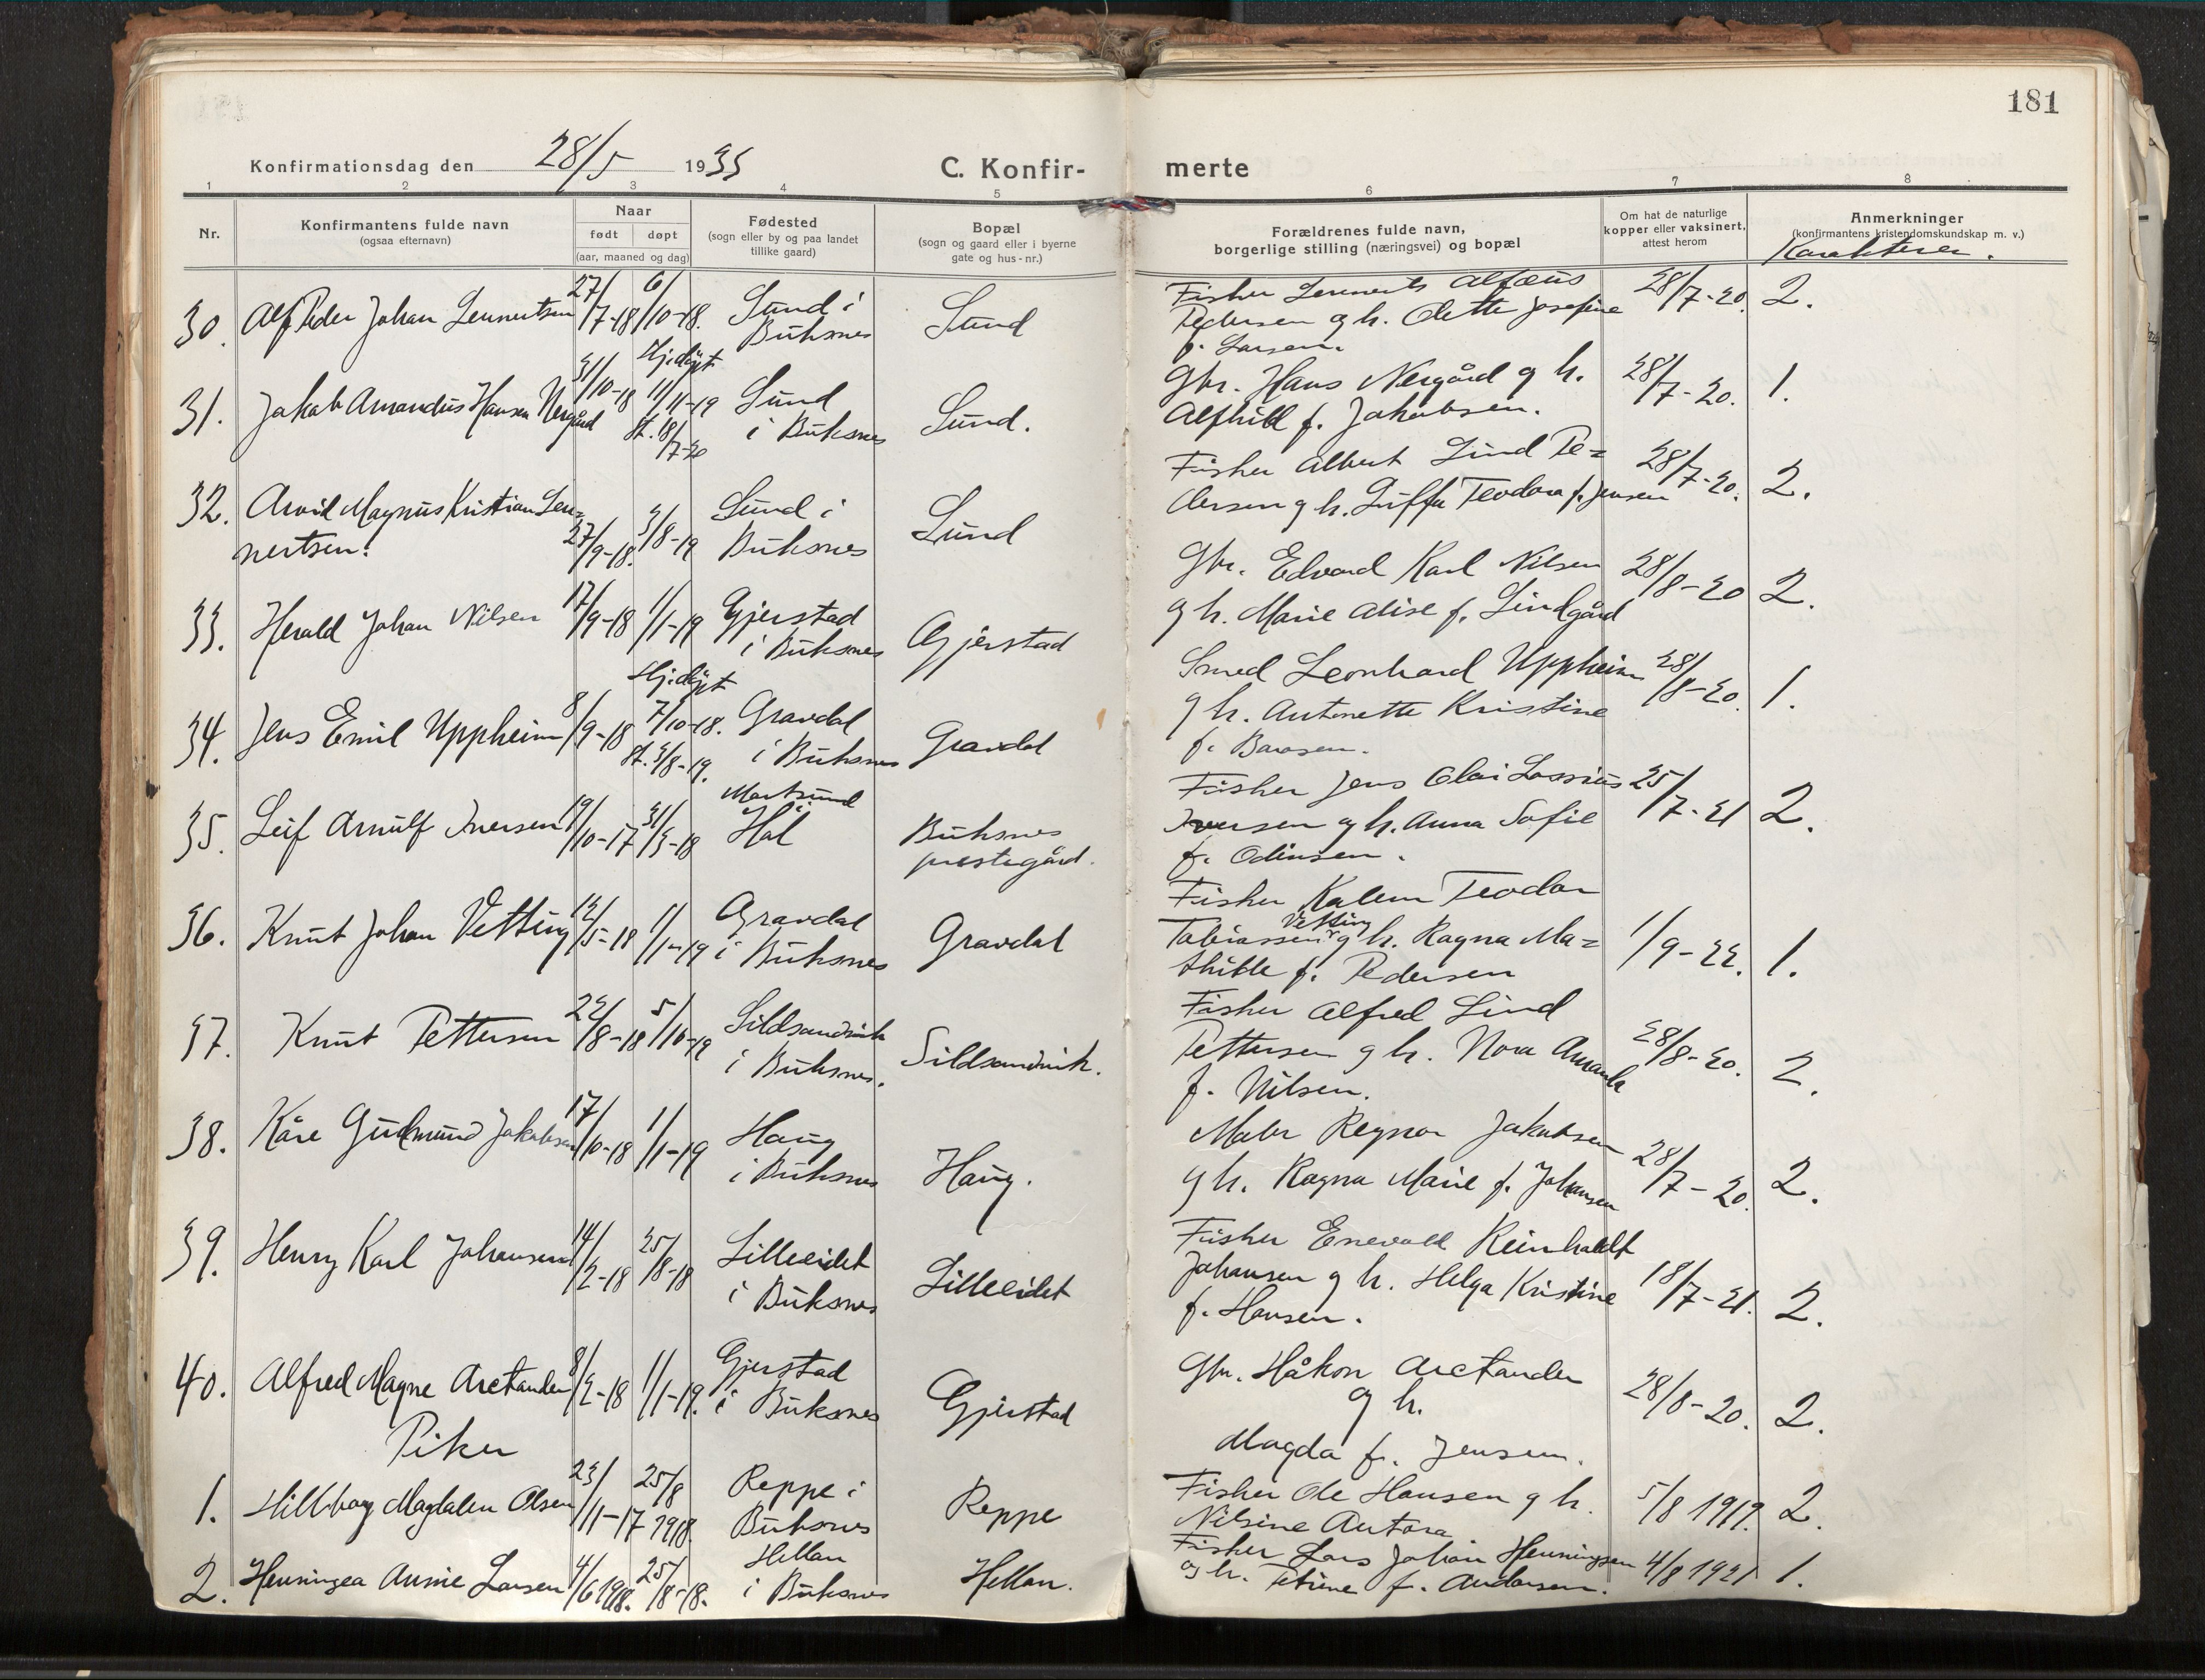 181
Konfirmationsdag den 28/5 1933
C. Konfir-
merte
1 2 3 4 5 6 7 8
Nr.
Konfirmantens fulde navn
(ogsaa efternavn)
Naar
født døpt
(aar, maaned og dag)
Fødested
(sogn eller by og paa landet
tillike gaard)
Bopæl
(sogn og gaard eller i byerne
gate og hus-nr.)
Forældrenes fulde navn,
borgerlige stilling (næringsvei) og bopæl
Om hat de naturlige
kopper eller vaksinert,
attest herom
Anmerkninger
(konfirmantens kristendomskundskap m. v.)
Karakterer.
30. Alf Peder Johan Lennertsen 27/7-18 6/10-18. Sund i
Buksnes
Sund
Fisker Lennerts Alfæus
Pedersen og h. Odette Josefine
f. Larsen.
28/7-20. 2.
31. Jakob Amandus Hansen Nergård 31/10-18 Hj.døpt
11/11-19
st. 18/7-20
Sund
i Buksnes
Sund.
Gbr. Hans Nergård og h.
Alfhild f. Jakobsen.
28/7-20. 1.
32. Arvid Magnus Kristian Len=
nertsen. 27/9-18. 3/8-19
Sund i
Buksnes
Sund
Fisker Albert Lind Pe=
dersen og h. Teodora f. Jensen
28/7-20. 2.
33. Herald Johan Nilsen 17/9-18 1/1-19 Gjerstad
i Buksnes
Gjerstad
Gbr. Edvard Karl Nilsen
og h. Marie Alise f. Lindgård
28/8-20 2.
34. Jens Emil Uppheim 8/9-18 Hj.døpt
7/10-18.
st. 3/8-19.
Gravdal
i Buksnes
Gravdal
Smed Leonhard Uppheim
og h. Antonette Kristine
f. Baresen.
28/8-20. 1.
35. Leif Arnulf Iversen 19/10-17 31/3-18
Mortsund
i
Hol
Buksnes
prestegård.
Fisker Jens Olai Lossius
Iversen og h. Anna Sofie
f. Odinsen.
25/7-21 2.
36. Knut Johan Vetting 12/5-18 1/1-19 Gravdal
i Buksnes
Gravdal
Fisker Kalem Teodor
Vetting
Tobiassen og h. Ragna Ma=
thilde f. Pedersen
1/9-22. 1.
37. Knut Pettersen 22/8-18 5/10-19 Sildsandvik
i Buksnes.
Sildsandvik.
Fisker Alfred Lind
Pettersen og h. Nora Amanda
f. Nilsen.
28/8-20. 2.
38. Kåre Gudmund Jakobsen 17/10-18 1/1-19 Haug
i Buksnes
Haug.
Maler Regnor Jakobsen
og h. Ragna Marie f. Johansen
28/7-20. 2.
39. Henry Karl Johansen 14/2-18 25/8-18 Lilleeidet
i Buksnes
Lilleeidet
Fisker Enevald Reinholdt
Johansen og h. Helga Kristine
f. Hansen.
18/7-21. 2.
40. Alfred Magne Arctander 8/2-18 1/1-19. Gjerstad
i Buksnes
Gjerstad
Gbr. Håkon Arctander
og h.
Magda f. Jensen.
28/8-20. 2.
Piker
1. Hildborg Magdalen Olsen 23/11-17 25/8
1918.
Reppe i
Buksnes
Reppe
Fisker Ole Hansen og h.
Nilsine Antora
5/8 1919. 2.
2. Henningea Annie Larsen 4/6 1918. 25/8-18. Hellan
i Buksnes
Hellan.
Fisker Lars Johan Henningsen
og h. Petrine f. Andorsen.
4/8 1921 1.